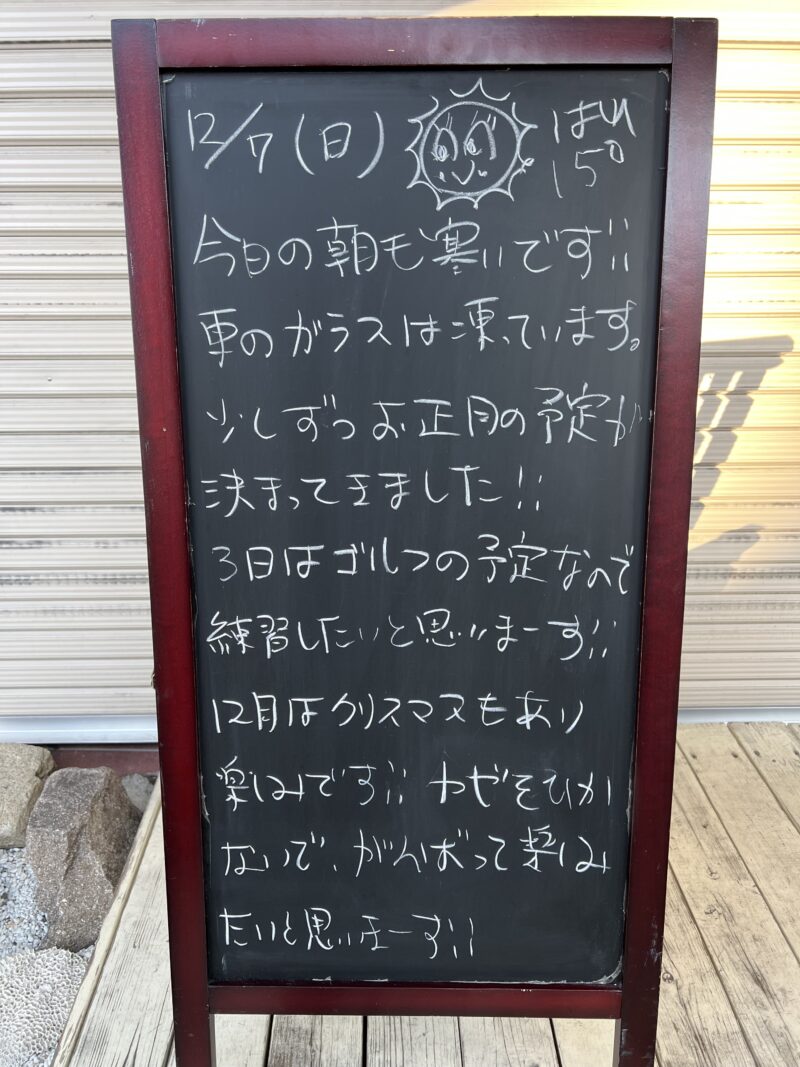 12/7(日) はれ 15°
今日の朝も寒いです!!
車のガラスは凍っています。
少しずつお正月の予定が
決まってきました!!
3日はゴルフの予定なので
練習したいと思いまーす!!
12月はクリスマスもあり
楽しみです!! カゼをひか
ないで、がんばって楽しみ
たいと思いまーす!!